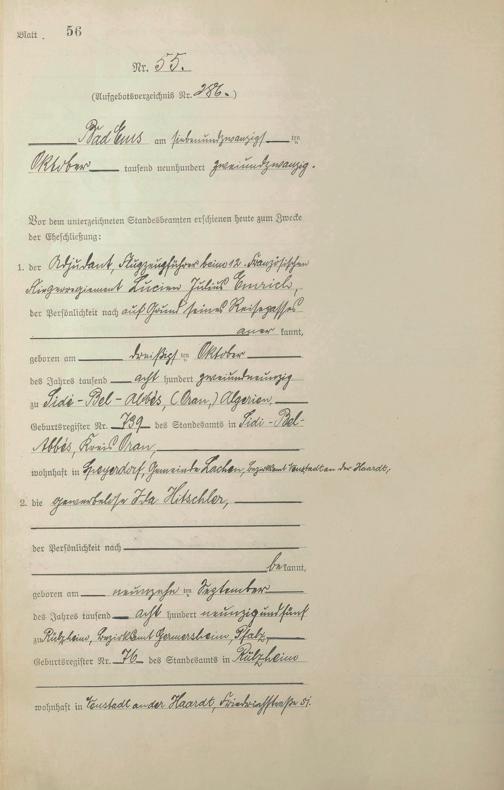 Blatt . 56
Nr. 55.
(Aufgebotsverzeichnis Nr. 286.)
Bad Ems am siebenundzwanzigs ten
Oktober tausend neunhundert zweiundzwanzig.
Vor dem unterzeichneten Standesbeamten erschienen heute zum Zwecke
der Eheschließung:
1. der Adjudant, Flugzeugführer beim 12. Französischen
Fliegerregiment Lucien Julius Emrich,
der Persönlichkeit nach auf Grund seines Reisepasses
aner kannt,
geboren am dreißigs ten Oktober
des Jahres tausend acht hundert zweiundneunzig
zu Sidi-Bel-Abbés, (Oran,) Algerien,
Geburtsregister Nr. 739 des Standesamts in Sidi-Bel-
Abbés, Kreis Oran,
wohnhaft in Speyerdorf, Gemeinde Lachen, Bezirksamt Neustadt an der Haardt,
2. die gewerbelose Ida Hitschler,
der Persönlichkeit nach
be kannt,
geboren am neunzehn ten September
des Jahres tausend acht hundert neunzigundfünf
zu Rülzheim, Bezirksamt Germersheim, Pfalz,
Geburtsregister Nr. 76 des Standesamts in Rülzheim
wohnhaft in Neustadt an der Haardt, Friedrichstraße 51.